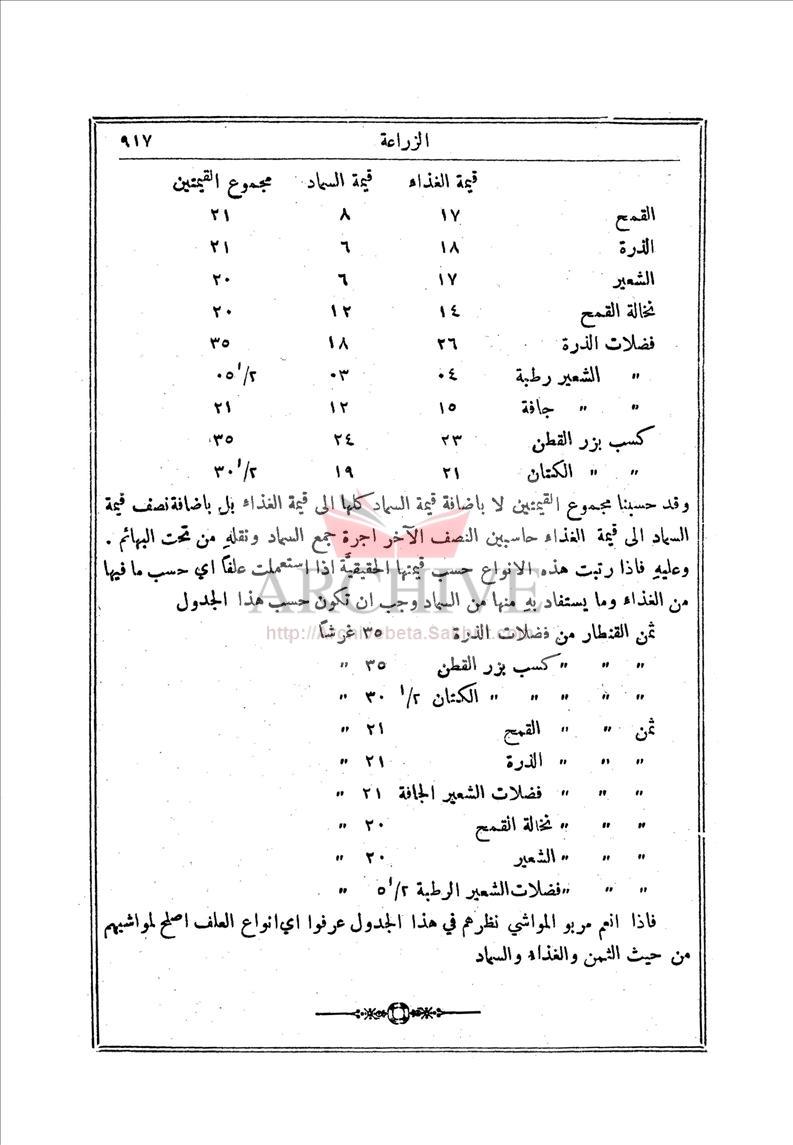 الزراعة ٩١٧
قيمة الغذاء قيمة السماد مجموع القيمتين
القمح ١٧ ٨ ٢١
الذرة ١٨ ٦ ٢١
الشعير ١٧ ٦ ٢٠
نخالة القمح ١٤ ١٢ ٢٠
فضلات الذرة ٢٦ ١٨ ٣٥
" الشعير رطبة ٠٤ ٠٣ ٠٥ ١/٢
" " جافة ١٥ ١٢ ٢١
كسب بزر القطن ٢٣ ٢٤ ٣٥
" " الكتان ٢١ ١٩ ٣٠ ١/٢
وقد حسبنا مجموع القيمتين لا باضافة قيمة السماد كلها الى قيمة الغذاء بل باضافة نصف قيمة
السماد الى قيمة الغذاء حاسبين النصف الآخر اجرة جمع السماد ونقله من تحت البهائم .
وعليه فاذا رتبت هذه الانواع حسب قيمتها الحقيقيَّة اذا استعملت علفًا اي حسب ما فيها
من الغذاء وما يستفاد به منها من السماد وجب ان تكون حسب هذا الجدول
ثمن القنطار من فضلات الذرة ٣٥ غرشًا
" " " كسب بزر القطن ٣٥ "
" " " " " الكتان ٣٠ ١/٢ "
ثمن " " القمح ٢١ "
" " " الذرة ٢١ "
" " " فضلات الشعير الجافة ٢١ "
" " " نخالة القمح ٢٠ "
" " " الشعير ٢٠ "
" " " فضلات الشعير الرطبة ٥ ١/٢ "
فاذا انعم مربو المواشي نظرهم في هذا الجدول عرفوا اي انواع العلف اصلح لمواشيهم
من حيث الثمن والغذاء والسماد
ARCHIVE